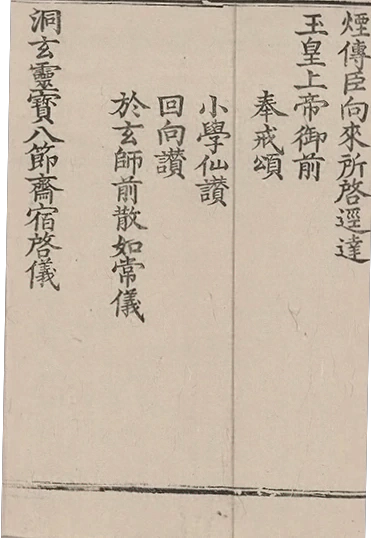 煙傳臣向來所啓逕達
玉皇上帝御前
奉戒頌
小學仙讃
回向讃
於玄師前散如常儀
洞玄靈寶八節齋宿啓儀